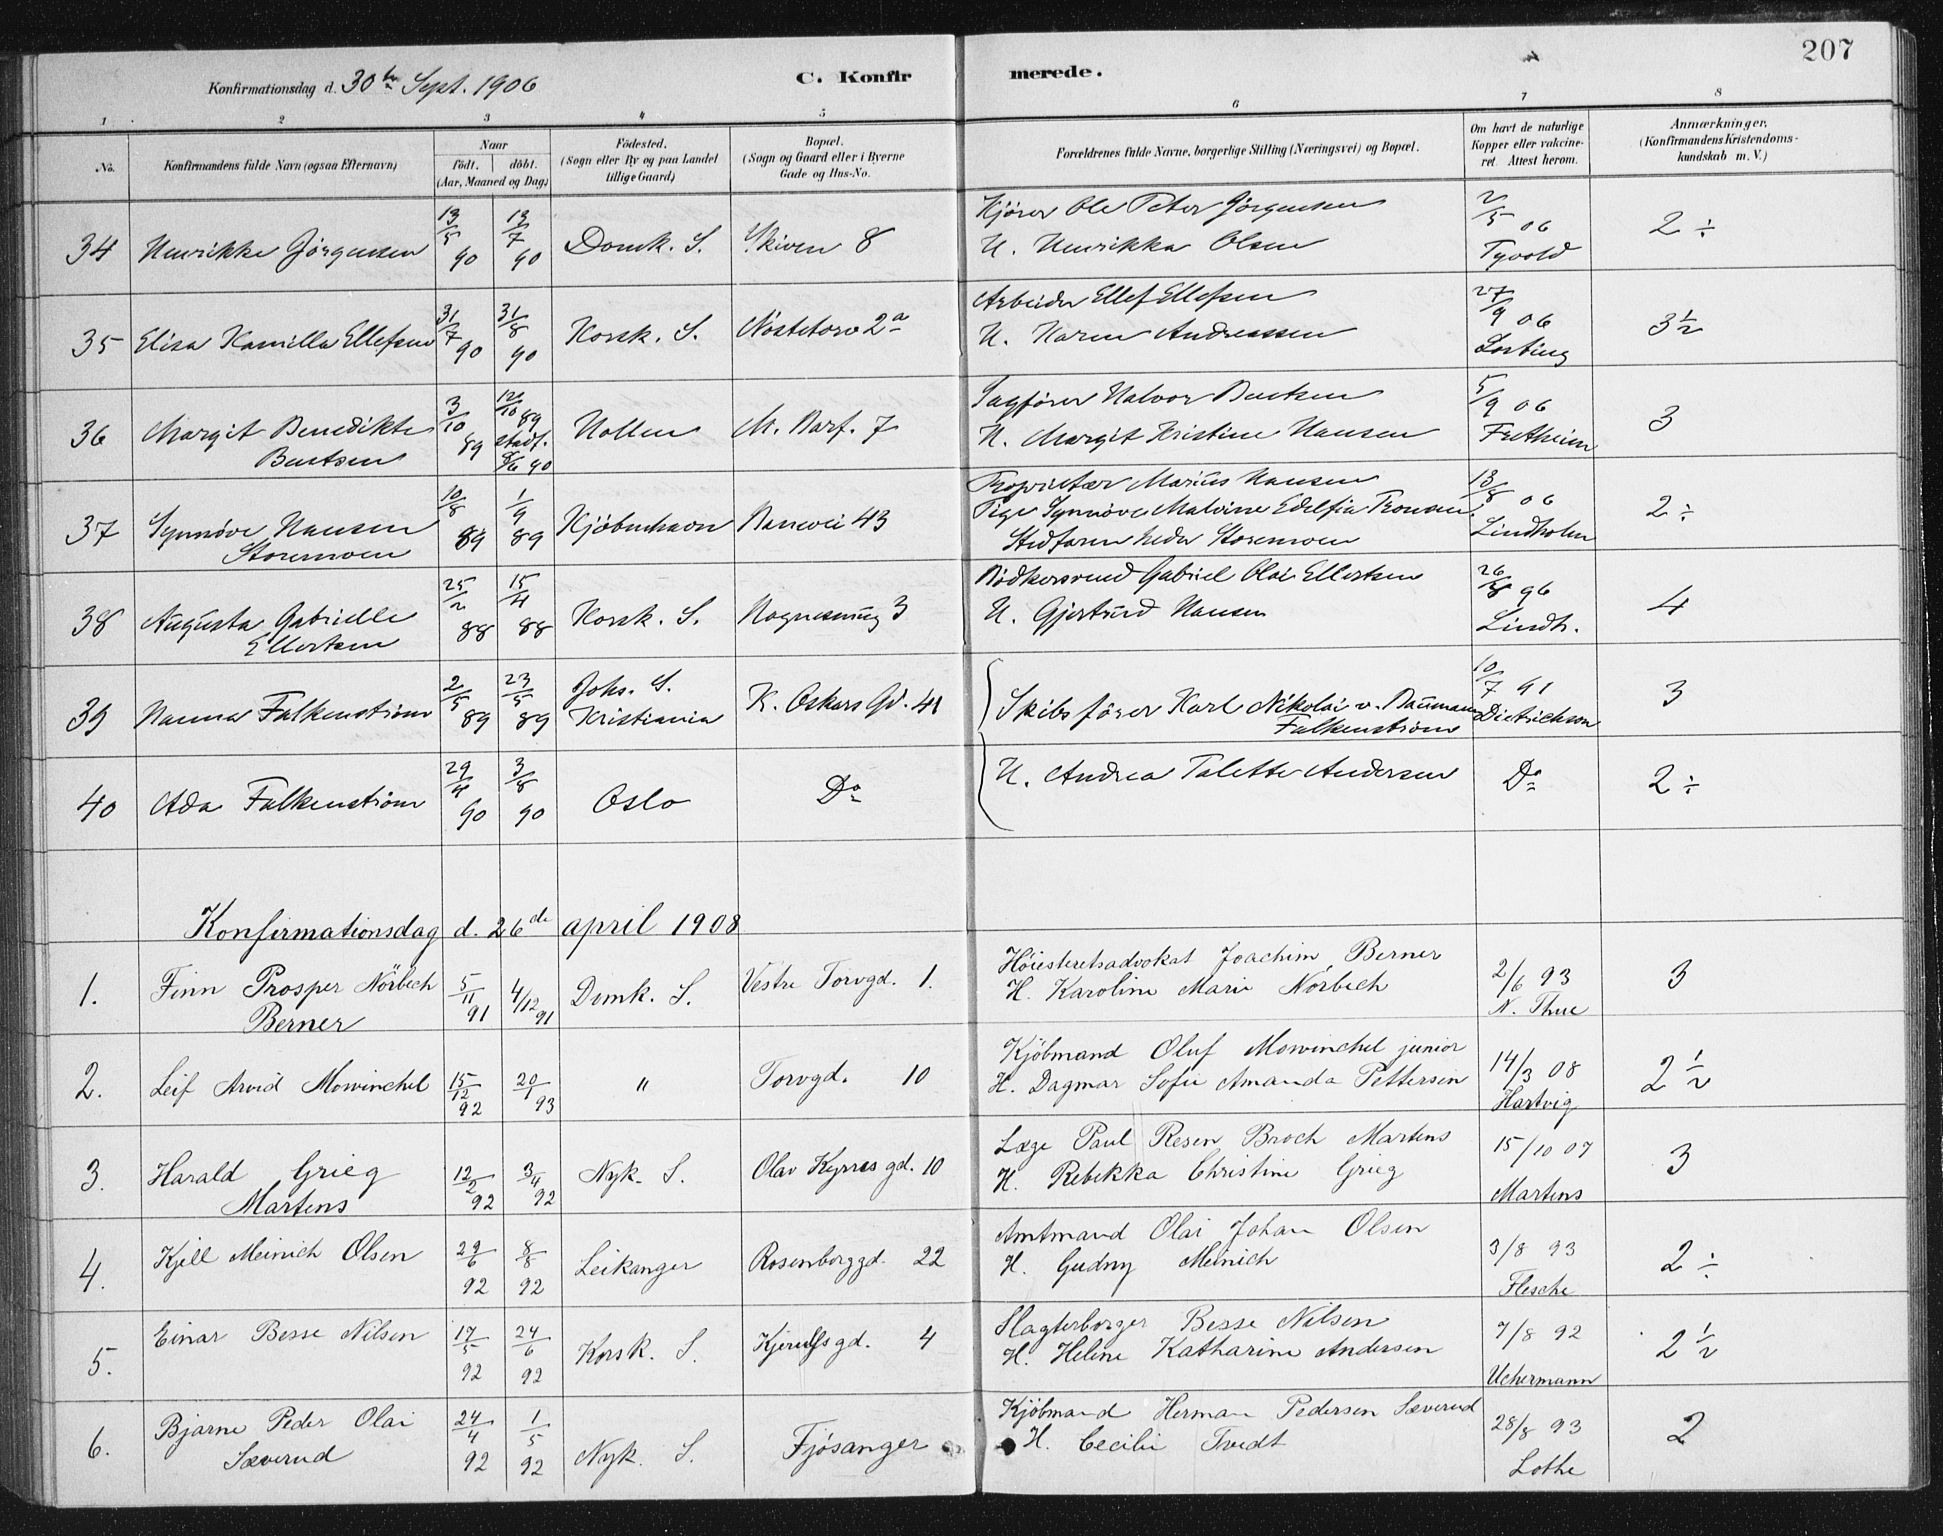 207
Konfirmationsdag d. 30te Sept. 1906 C. Konfirmerede.
1 2 3 4 5 6 7 8
No. Konfirmandens fulde Navn (ogsaa Efternavn) Naar Födt. döbt. (Aar, Maaned og Dag) Födested. (Sogn eller By og paa Landet tillige Gaard) Bopæl. (Sogn og Gaard eller i Byerne Gade og Hus-No. Forældrenes fulde Navne, borgerlige Stilling (Næringsvei) og Bopæl. Om havt de naturlige Kopper eller vakcineret. Attest herom. Anmærkninger. (Konfirmandens Kristendomskundskab m. V.)
34 Henrikke Jörgensen 13/5 90 13/7 90 Domk. S. Skiven 8 Kjörer Ole Peter Jörgensen
H. Henrikka Olsen 2/5 06 Tyvold 2 ÷
35 Elisa Kamilla Ellefsen 31/7 90 31/8 90 Korsk. S. Nöstetorv 2a Arbeider Ellef Ellefsen
H. Karen Andreassen 27/9 06 Lorting 3½
36 Margit Benedikte Bentsen 3/10 89 12/10 89 stadf. 8/6 90 Hollen M. Barf. 7 Sagförer Halvor Bentsen
H. Margit Kristine Hansen 5/9 06 Fretheim 3
37 Synnöve Hansen Storemoen 10/8 89 1/9 89 Kjöbenhavn Banevei 43 Proprietær Marius Hansen
Pige Synnöve Malvine Edelfia Tronsen.
Stedfaren heder Storemoen 13/8 06 Lindholm 2 ÷
38 Augusta Gabrielle Ellertsen 25/2 88 15/4 88 Korsk. S. Magnesmug 3 Bödkersvend Gabriel Olai Ellertsen
H. Gjertrud Hansen 26/8 96 Lindh. 4
39 Nanna Falkenström 2/5 89 23/5 89 Johs. S. Kristiania K. Oskars Gd. 41 Skibsförer Karl Nikolai v. Baumann Falkenström 10/7 91 Dietrichson 3
40 Ada Falkenström 29/4 90 3/8 90 Oslo Do H. Andrea Talette Andersen Do 2 ÷
Konfirmationsdag d. 26de april 1908
1. Finn Prosper Nörbech Berner 5/11 91 4/12 91 Domk. S. Vestre Torvgd. 1. Höiesteretsadvokat Joachim Berner
H. Karoline Marie Nörbech 2/6 93 N. Thue 3
2. Leif Arvid Mowinckel 15/12 92 20/1 93 " Torvgd. 10 Kjöbmand Oluf Mowinckel junior
H. Dagmar Sofie Amanda Pettersen 14/3 08 Hartvig 2 ½
3. Harald Grieg Martens 12/2 92 3/4 92 Nyk. S. Olav Kyrres gd. 10 Læge Paul Resen Broch Martens
H. Rebekka Christine Grieg 15/10 07 Martens 3
4. Kjell Meinich Olsen 29/6 92 8/8 92 Leikanger Rosenborggd. 22 Amtmand Olai Johan Olsen
H. Gudny Meinich 3/8 93 Flesche 2 ÷
5. Einar Besse Nilsen 17/5 92 24/6 92 Korsk. S. Kjerulfs gd. 4 Slagterborger Besse Nilsen
H. Helene Katharine Andersen 7/8 92 Uchermann 2 ½
6. Bjarne Peder Olai Sæverud 24/4 92 1/5 92 Nyk. S. Fjösanger Kjöbmand Herman Pedersen Sæverud
H. Cecilie Tvedt 28/8 93 Lothe 2